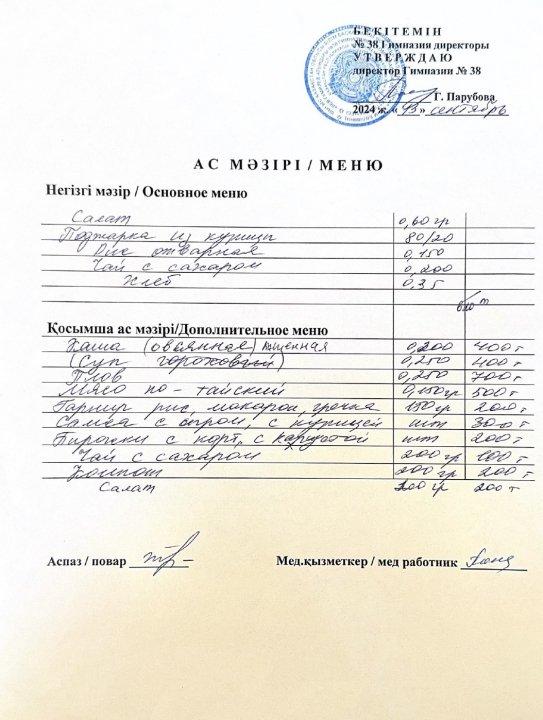 БЕКІТЕМІН
№ 38 Гимназия директоры
УТВЕРЖДАЮ
директор Гимназии № 38
Г. Парубова
2024 ж. «13» сентябрь
АС МӘЗІРІ / МЕНЮ
Негізгі мәзір / Основное меню
Салат 0,60 гр
Поджарка из курицы 80/20
Рис отварная 0,150
Чай с сахаром 0,200
Хлеб 0,35
Қосымша ас мәзірі/Дополнительное меню
Каша (овсянная) пшенная 0,200 400 т
(Суп гороховый) 0,250 400 т
Плов 0,250 700 т
Мясо по-тайский 0,150 гр 500 т
Гарнир рис, макарон, гречка 150 гр 200 т
Самса с сыром, с курицей шт 300 т
Пирожки с карт, с капустой шт 200 т
Чай с сахаром 200 гр 100 т
Компот 200 гр 200 т
Салат 100 гр 200 т
Аспаз / повар
Мед.қызметкер / мед работник